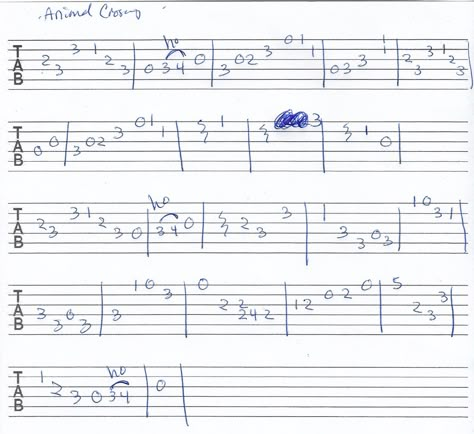 Animal Crossing
ho
TAB 2 3 3 1 2 3 | 0 3 4 0 | 3 0 2 3 0 1 1 | 0 3 3 1 1 | 2 3 3 1 2 3
TAB 0 0 | 3 0 2 3 0 1 1 | 1 | 3 | 1 0
ho
TAB 2 3 3 1 2 3 0 | 3 4 0 | 2 3 3 | 1 3 3 0 3 | 1 0 3 1
TAB 3 3 0 3 | 3 1 0 3 | 0 2 2 2 4 2 | 1 2 0 2 0 | 5 2 3 3
ho
TAB 1 2 3 0 3 4 | 0